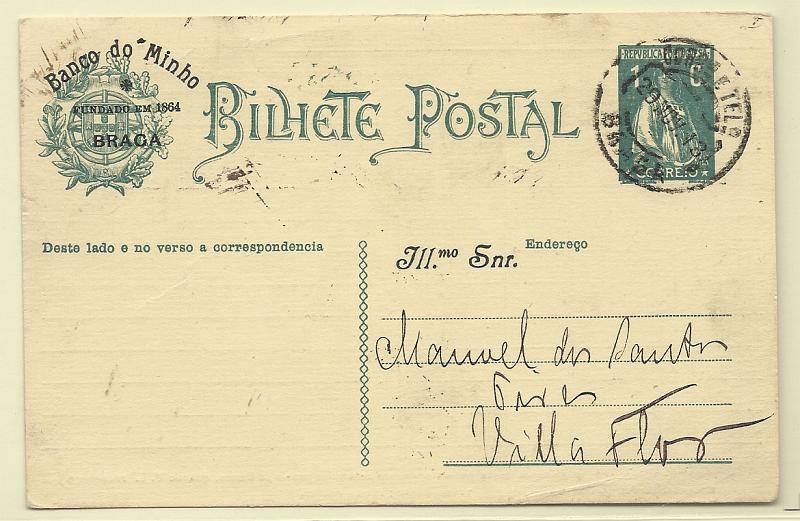 Banco do Minho
FUNDADO EM 1864
BRAGA
BILHETE POSTAL
REPUBLICA PORTUGUESA
C.
CORREIO
BRAGA
Deste lado e no verso a correspondencia
Endereço
Ill.mo Snr.
Manuel dos Santos
Pires
Villa Flor